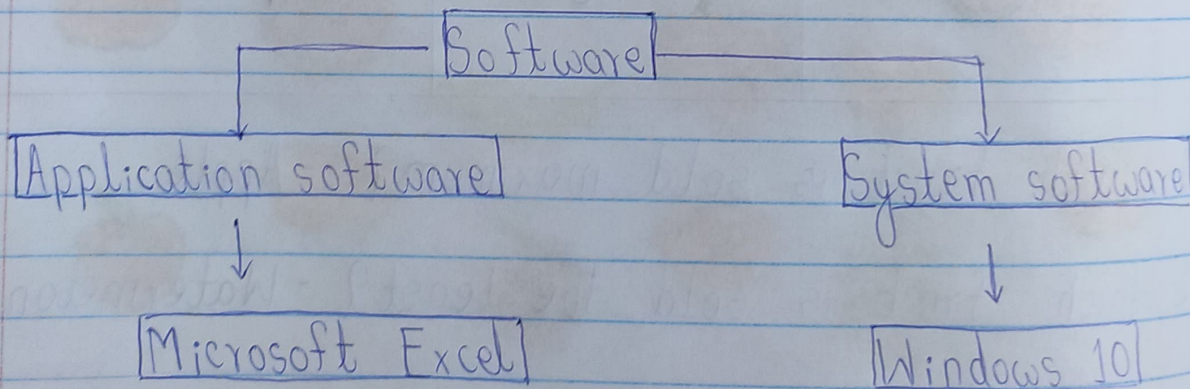 Software
Application software System software
Microsoft Excel Windows 10